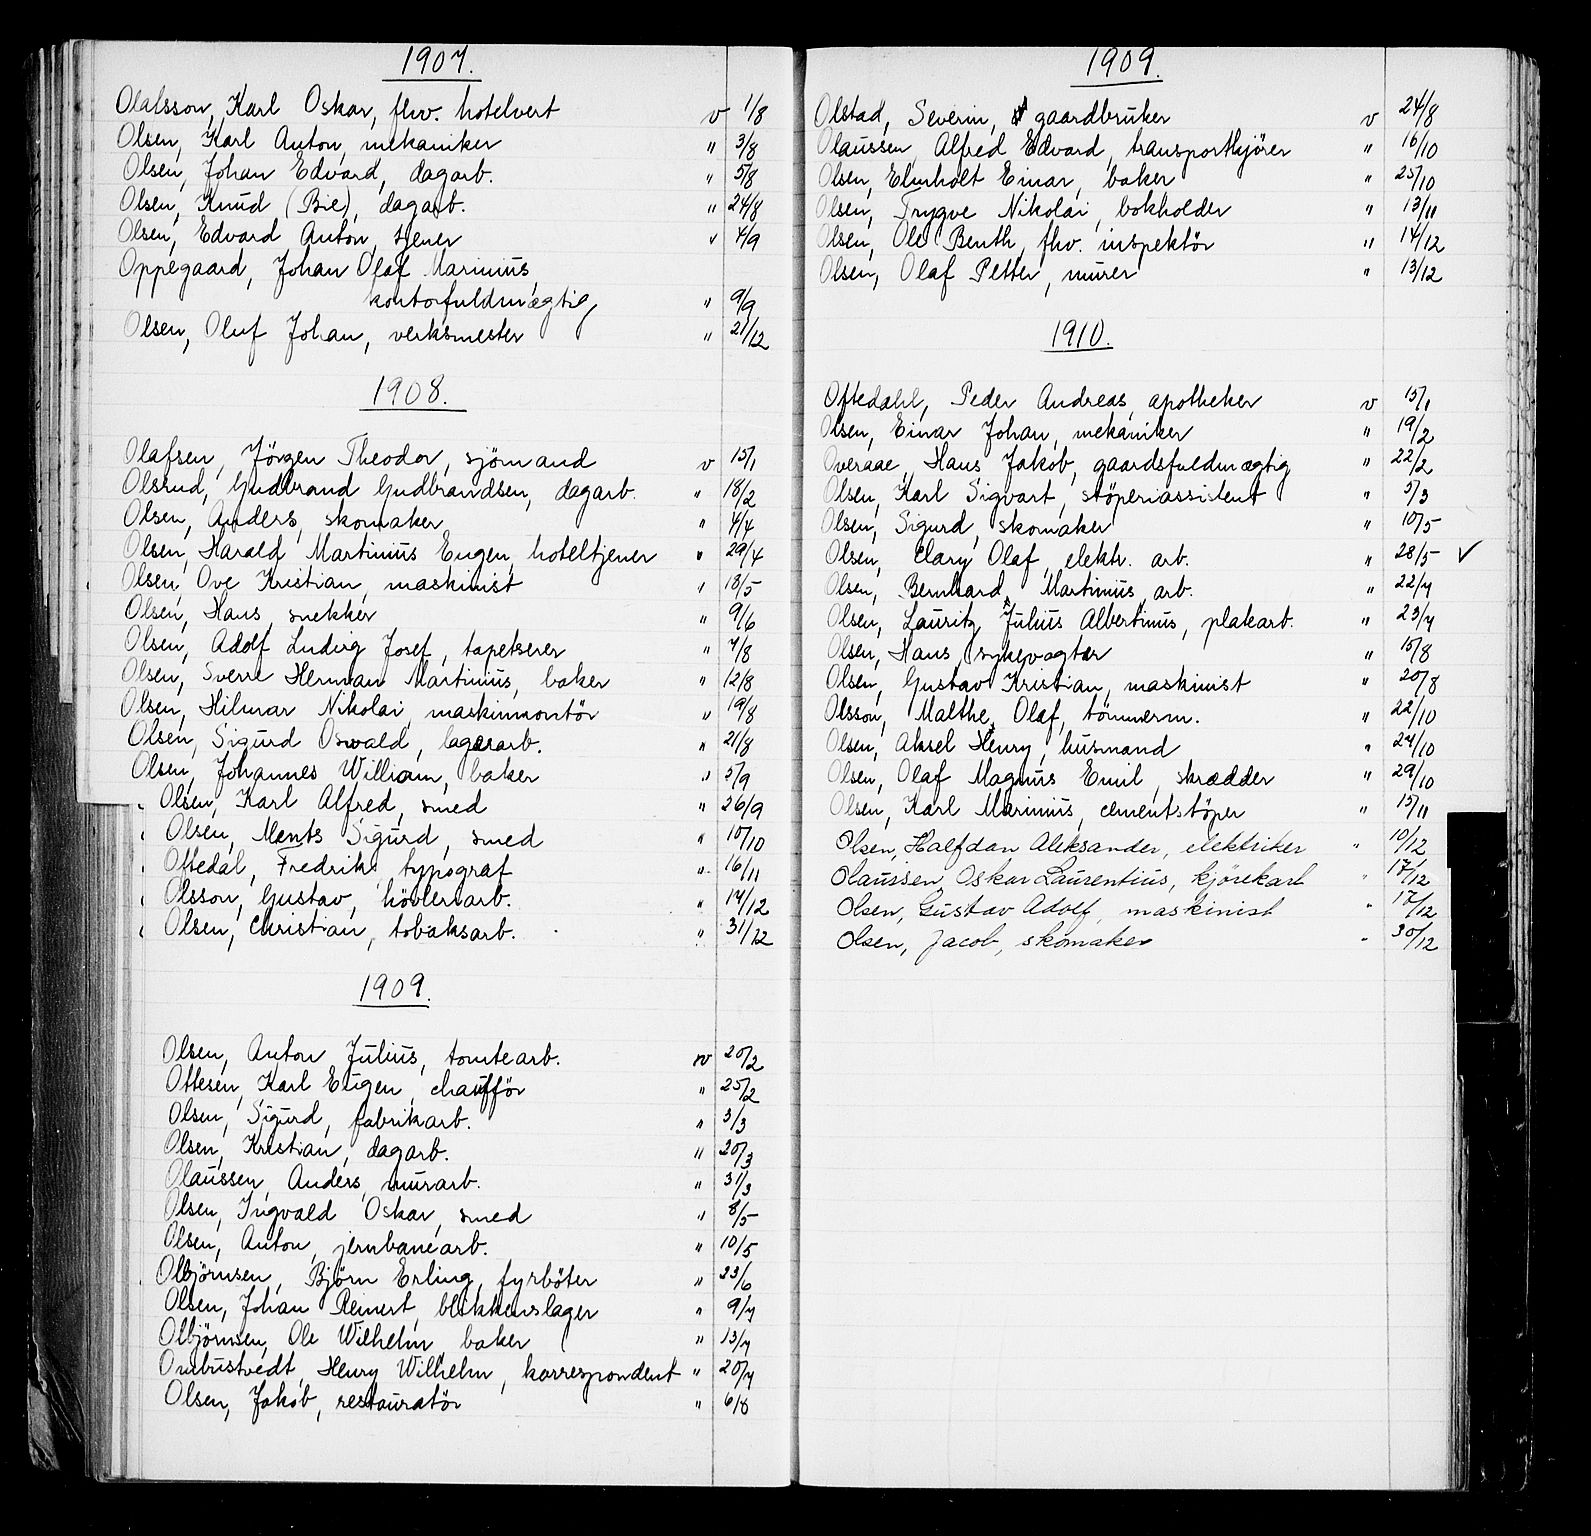 1907.
Olafsson, Karl Oskar, fhv. hotelvert v 1/8
Olsen, Karl Anton, mekaniker " 3/8
Olsen, Johan Edvard, dagarb. " 5/8
Olsen, Knud (Bie), dagarb. " 24/8
Olsen, Edvard Anton, tjener " 4/9
Oppegaard, Johan Olaf Marinius,
kontorfuldmægtig " 9/9
Olsen, Oluf Johan, verksmester " 21/12
1908.
Olafsen, Jörgen Theodor, sjömand v 15/1
Olsrud, Gudbrand Gudbrandsen, dagarb. " 18/2
Olsen, Anders, skomaker " 4/4
Olsen, Harald Martinius Eugen, hoteltjener " 29/4
Olsen, Ove Kristian, maskinist " 18/5
Olsen, Hans, snekker " 9/6
Olsen, Adolf Ludvig Josef, tapetserer " 7/8
Olsen, Sverre Herman Martinius, baker " 12/8
Olsen, Hilmar Nikolai, maskinmontör " 19/8
Olsen, Sigurd Oswald, lagerarb. " 21/8
Olsen, Johannes William, baker " 5/9
Olsen, Karl Alfred, smed " 26/9
Olsen, Ments Sigurd, smed " 10/10
Oftedal, Fredrik, typograf " 16/11
Olsson, Gustav, hövleriarb. " 14/12
Olsen, Christian, tobaksarb. " 31/12
1909.
Olsen, Anton Julius, tomtearb. v 20/2
Ottesen, Karl Eugen, chaufför " 25/2
Olsen, Sigurd, fabrikarb. " 3/3
Olsen, Kristian, dagarb. " 20/3
Olaussen, Anders, murarb. " 31/3
Olsen, Ingvald Oskar, smed " 8/5
Olsen, Anton, jernbanearb. " 10/5
Olbjörnsen, Björn Erling, fyrböter " 23/6
Olsen, Johan Reinert, blikkenslager " 9/7
Olbjörnsen, Ole Wilhelm, baker " 13/7
Ombustvedt, Henry Wilhelm, korrespondent " 20/7
Olsen, Jakob, restauratör " 6/8
1909.
Olstad, Severin, gaardbruker v 24/8
Olaussen, Alfred Edvard, transportkjörer " 16/10
Olsen, Elmholt Einar, baker " 25/10
Olsen, Trygve Nikolai, bokholder " 13/11
Olsen, Ole Benth, fhv. inspektör " 14/12
Olsen, Olaf Petter, murer " 13/12
1910.
Oftedahl, Peder Andreas, apotheker v 15/1
Olsen, Einar Johan, mekaniker " 19/2
Overaae, Hans Jakob, gaardsfuldmægtig " 22/2
Olsen, Karl Sigvart, stöperiassistent " 5/3
Olsen, Sigurd, skomaker " 10/5
Olsen, Clary Olaf, elektr. arb. " 28/5 ✓
Olsen, Bernhard Martinius, arb. " 22/7
Olsen, Lauritz Julius Albertinus, platearb. " 23/7
Olsen, Hans, sykevogter " 15/8
Olsen, Gustav Kristian, maskinist " 20/8
Olsson, Malthe Olaf, tömmerm. " 22/10
Olsen, Aksel Henry, husmand " 24/10
Olsen, Olaf Magnus Emil, skrædder " 29/10
Olsen, Karl Marinius, cementstöper " 15/11
Olsen, Halfdan Aleksander, elektriker " 10/12
Olaussen, Oskar Laurentius, kjörekarl " 17/12
Olsen, Gustav Adolf, maskinist " 17/12
Olsen, Jacob, skomaker " 30/12